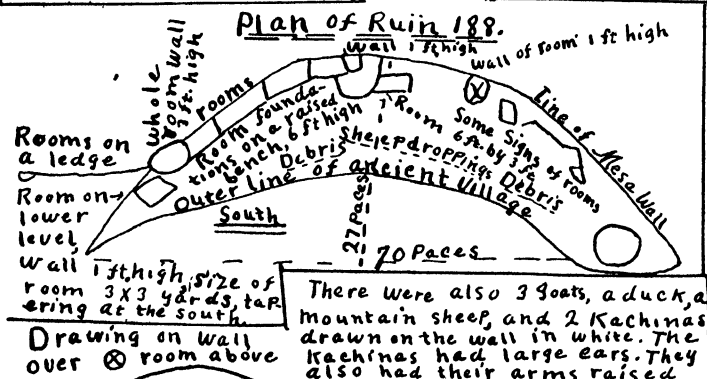 Plan of Ruin 188.
Wall 1 ft high
Wall of room 1 ft high
whole
room wall
3 ft. high
rooms
Room founda-
tions on a raised
bench, 6 ft high
Room
6 ft. by 3 ft.
Some Signs of rooms
Line of Mesa Wall
Rooms on
a ledge
Debris Sheep droppings Debris
Outer line of ancient village
Room on
lower
level,
Wall 1 ft, high, size of
room 3 X 3 yards, tap
ering at the south.
South
27 Paces
70 Paces
Drawing on wall
over ⓧ room above
There were also 3 goats, a duck, a
mountain sheep, and 2 Kachinas
drawn on the wall in white. The
Kachinas had large ears. They
also had their arms raised